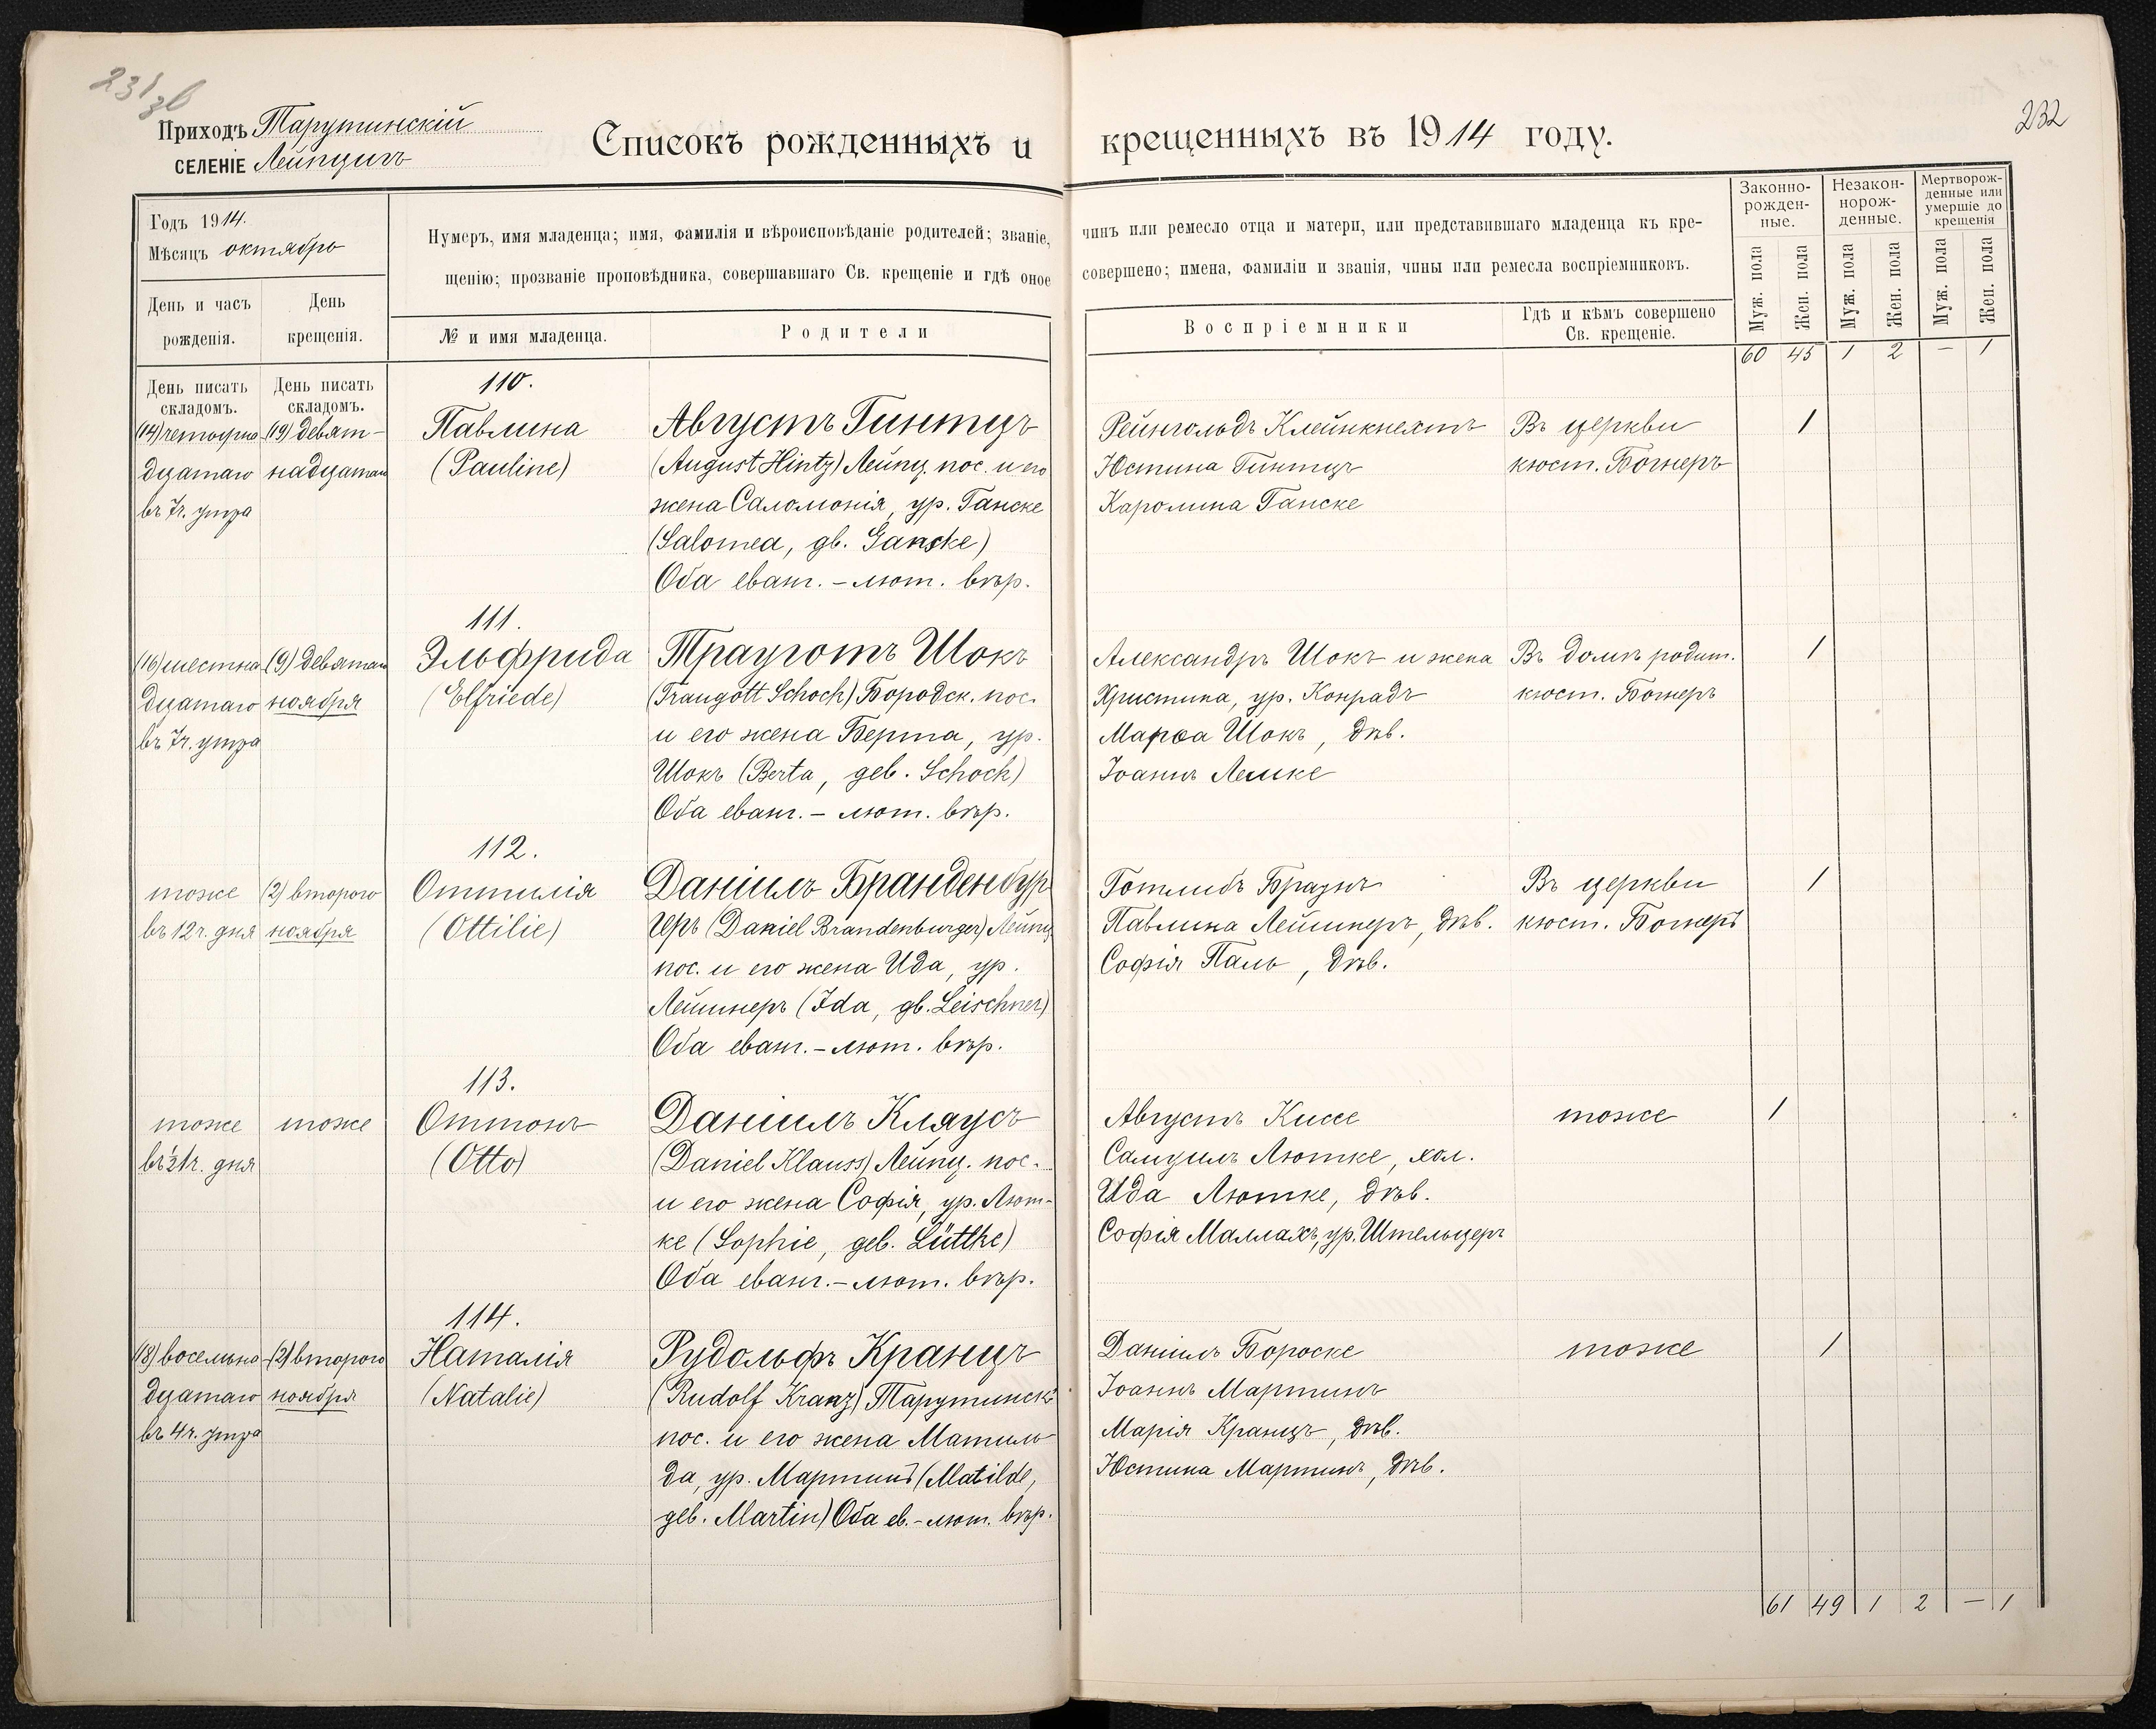 231 зв
232
Приходъ Тарутинскій
СЕЛЕНІЕ Лейпцигъ
Списокъ рожденныхъ и крещенныхъ въ 1914 году.
Годъ 1914.
Мѣсяцъ октябрь
День и часъ рожденія.
День крещенія.
Нумеръ, имя младенца; имя, фамилія и вѣроисповѣданіе родителей; званіе, чинъ или ремесло отца и матери, или представившаго младенца къ кре-
щенію; прозваніе проповѣдника, совершавшаго Св. крещеніе и гдѣ оное совершено; имена, фамиліи и званія, чины или ремесла воспріемниковъ.
№ и имя младенца.
Родители
Воспріемники
Гдѣ и кѣмъ совершено
Св. крещеніе.
Законно-
рожден-
ные.
Незакон-
норож-
денные.
Мертворож-
денные или
умершіе до
крещенія
Муж. пола
Жен. пола
Муж. пола
Жен. пола
Муж. пола
Жен. пола
60 45 1 2 — 1
День писать
складомъ.
День писать
складомъ.
(14) четырна-
дцатаго
въ 7ч. утра
(19) девят-
надцатаго
110.
Павлина
(Pauline)
Августъ Гинтцъ
(August Hintz) Лейпц. пос. и его
жена Саломонія, ур. Ганске
(Salomea, gb. Ganske)
Оба еванг.-лют. вѣр.
Рейнгольдъ Клейнкнехтъ
Юстина Гинтцъ
Каролина Ганске
Въ церкви
кюст. Богнеръ
1
(16) шестна-
дцатаго
въ 7ч. утра
(9) девятаго
ноября
111.
Эльфрида
(Elfriede)
Трауготъ Шокъ
(Traugott Schoch) Бородск. пос.
и его жена Берта, ур.
Шокъ (Berta, geb. Schoch)
Оба еванг.-лют. вѣр.
Александръ Шокъ и жена
Христина, ур. Конрадъ
Марѳа Шокъ, дѣв.
Іоаннъ Лемке
Въ домѣ родит.
кюст. Богнеръ
1
тоже
въ 12ч. дня
(2) второго
ноября
112.
Оттилія
(Ottilie)
Даніилъ Бранденбур
геръ (Daniel Brandenburger) Лейпц
пос. и его жена Ида, ур.
Лейшнеръ (Ida, gb. Leischner)
Оба еванг.-лют. вѣр.
Готлибъ Браунъ
Павлина Лейшнеръ, дѣв.
Софія Паль, дѣв.
Въ церкви
кюст. Богнеръ
1
тоже
въ ½1ч. дня
тоже
113.
Оттонъ
(Otto)
Даніилъ Клаусъ
(Daniel Klauss) Лейпц. пос.
и его жена Софія, ур. Лют-
ке (Sophie, geb. Lüttke)
Оба еванг.-лют. вѣр.
Августъ Киссе
Самуилъ Лютке, хол.
Ида Лютке, дѣв.
Софія Маллахъ, ур. Штельцеръ
тоже
1
(18) восемьна-
дцатаго
въ 4ч. утра
(2) второго
ноября
114.
Наталія
(Natalie)
Рудольфъ Кранцъ
(Rudolf Kranz) Тарутинск.
пос. и его жена Матиль-
да, ур. Мартинъ (Matilde,
geb. Martin) Оба ев.-лют. вѣр.
Даніилъ Бороске
Іоаннъ Мартинъ
Марія Кранцъ, дѣв.
Юстина Мартинъ, дѣв.
тоже
1
61 49 1 2 — 1